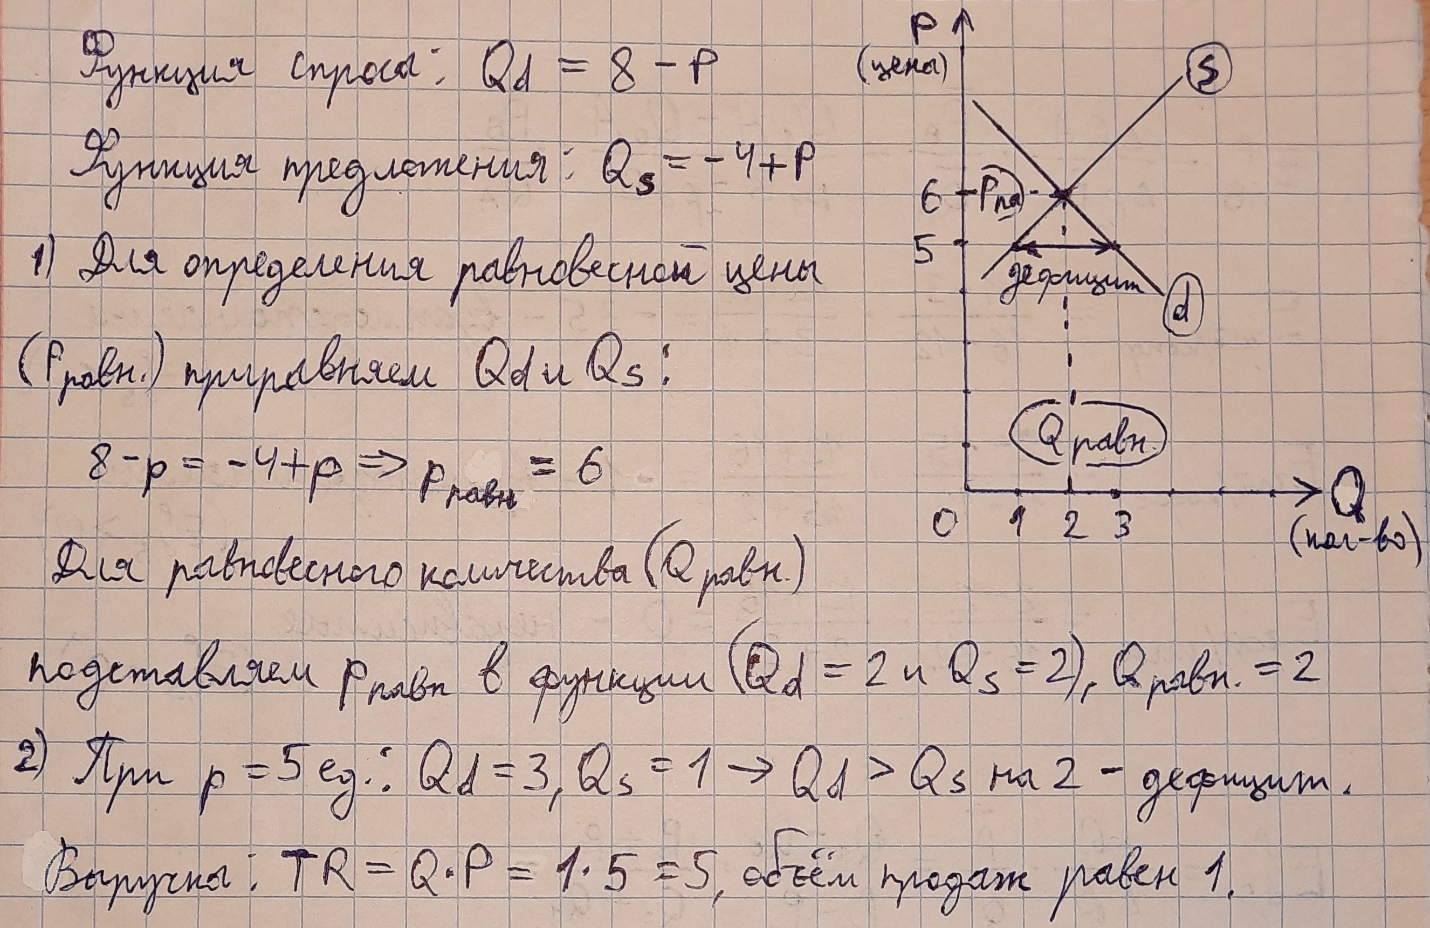 Функция спроса: Qd = 8 - P
Функция предложения: Qs = -4+P
1) Для определения равновесной цены
(Pравн.) приравняем Qd и Qs:
8-p = -4+p => Pравн = 6
Для равновесного количества (Qравн.)
подставляем Pравн в функции (Qd = 2 и Qs = 2), Qравн. = 2
2) При p = 5 ед.: Qd = 3, Qs = 1 → Qd > Qs на 2 - дефицит.
Выручка: TR = Q·P = 1·5 = 5, объём продаж равен 1.
P
(цены)
S
6
5
дефицит
d
Qравн.
0 1 2 3
Q
(кол-во)